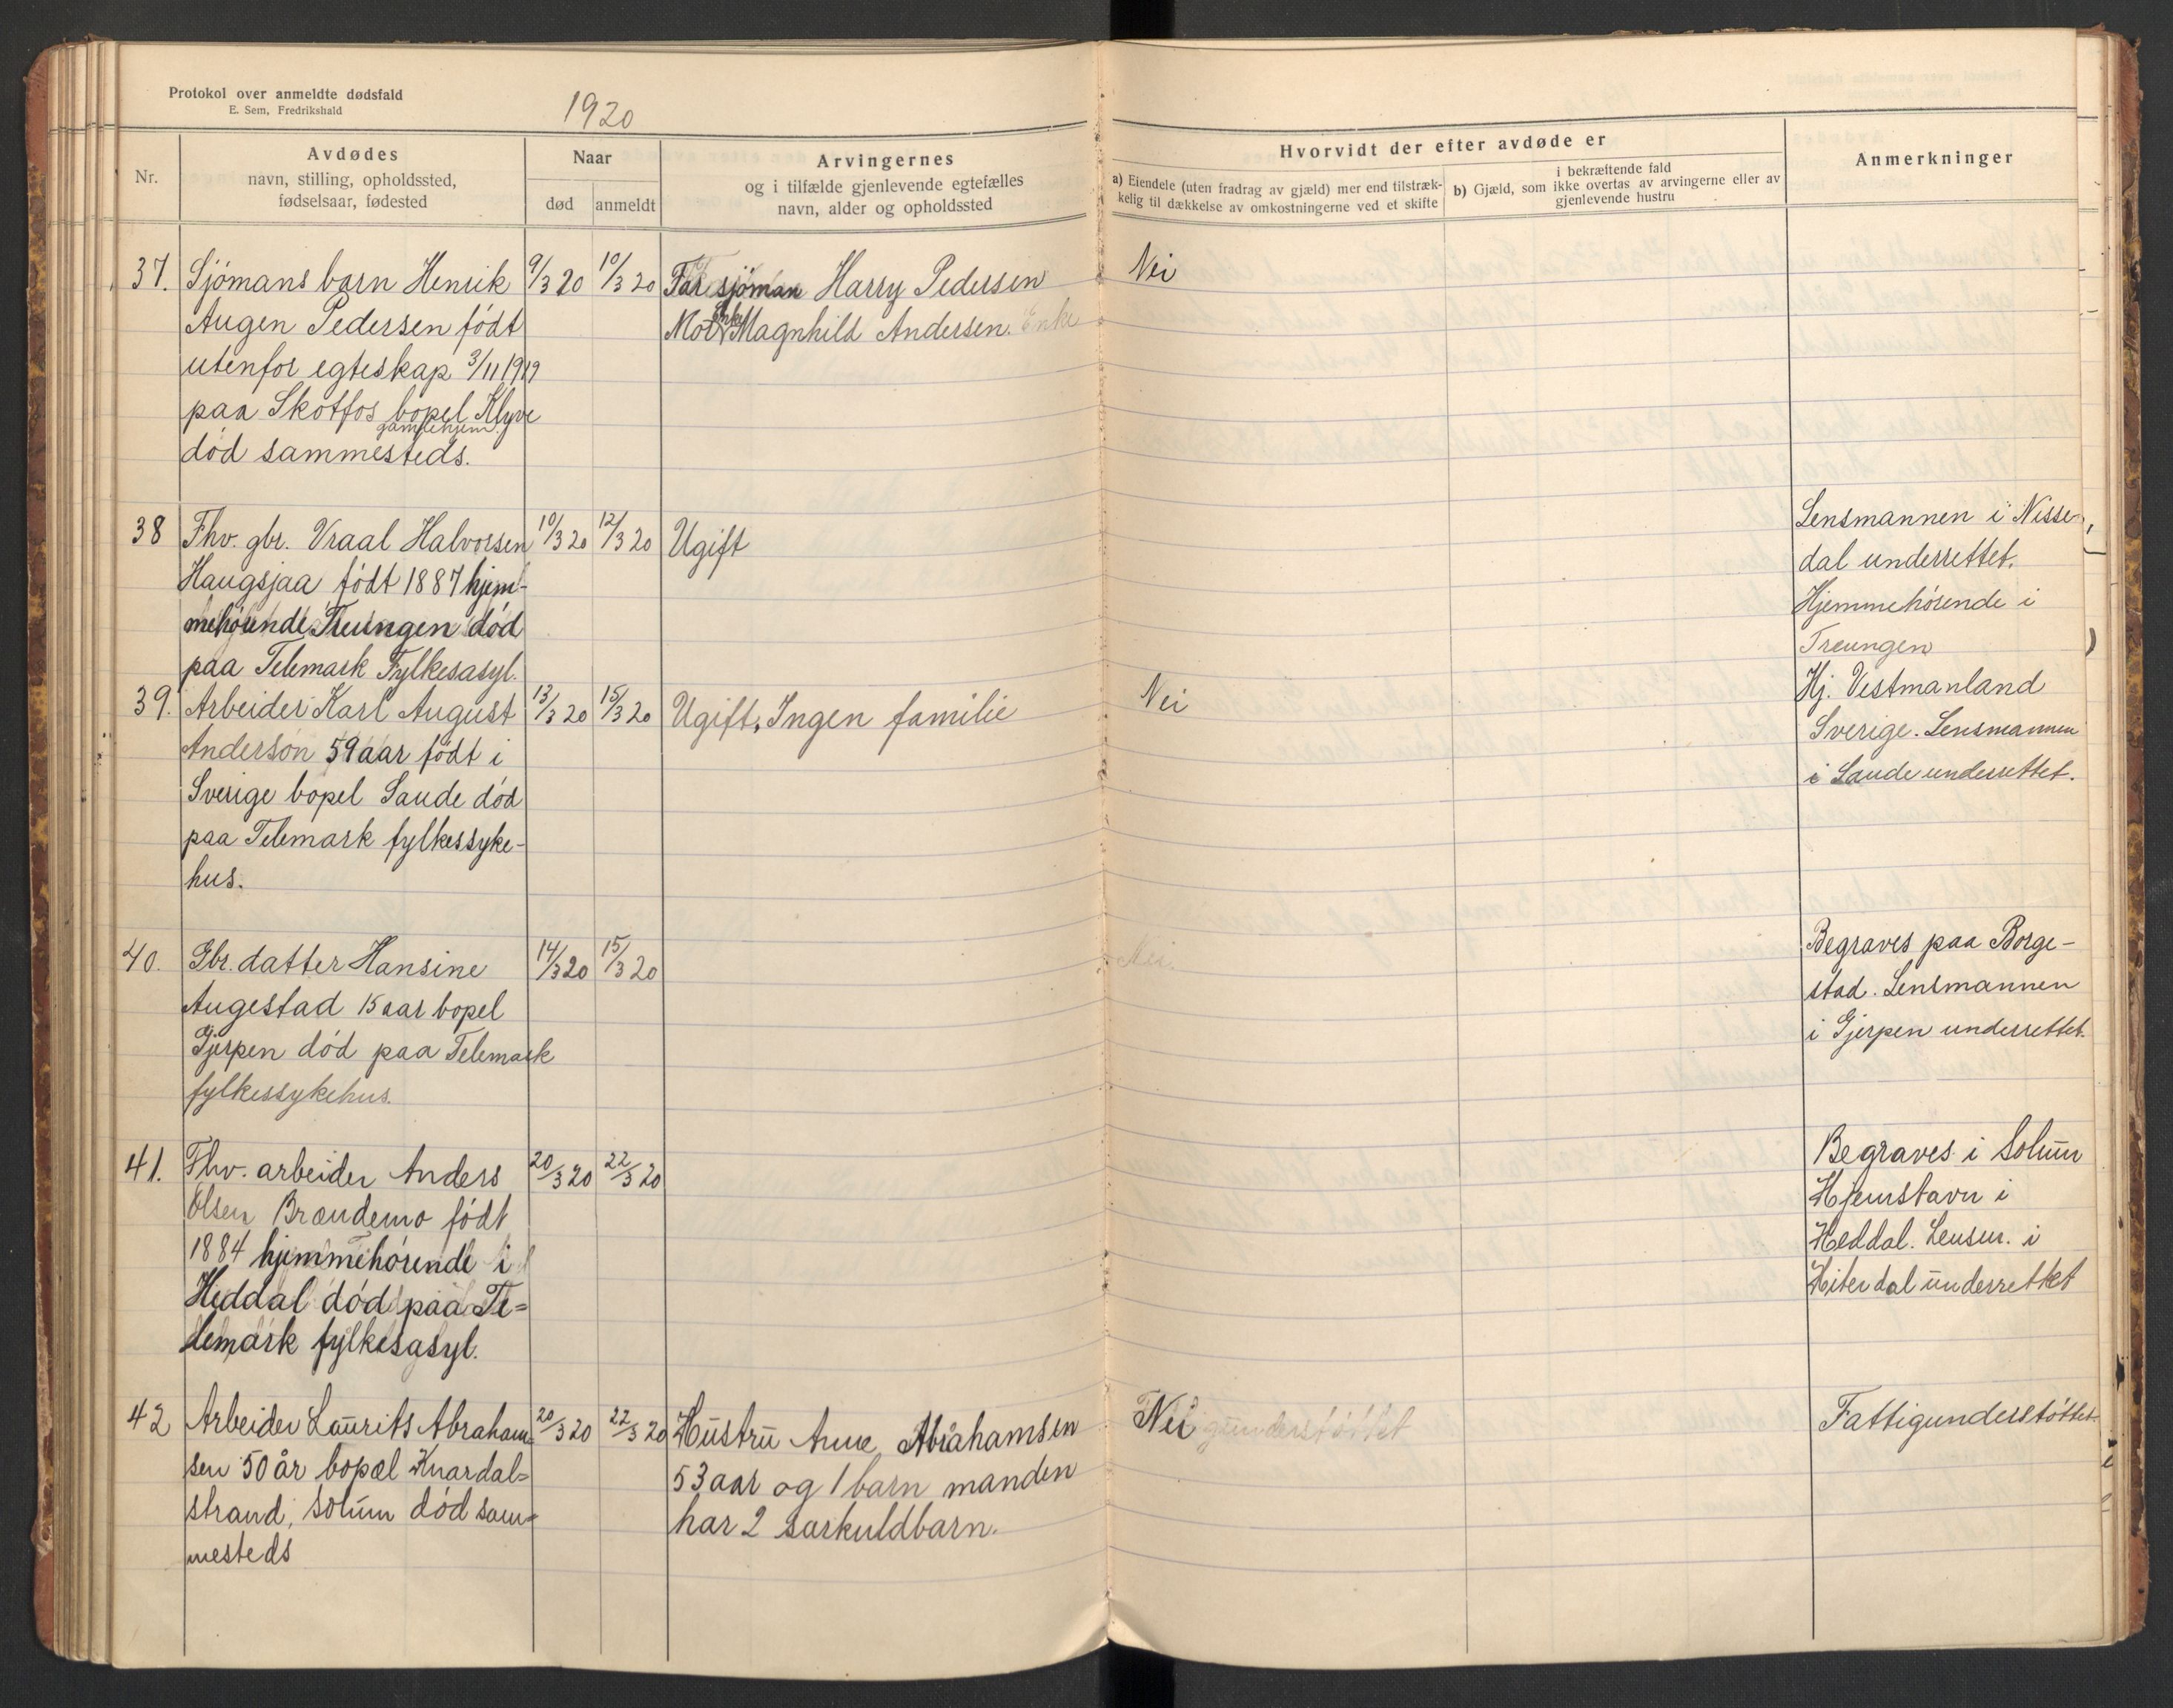 Protokol over anmeldte dødsfald
E. Sem, Fredrikshald
1920
Nr.
Avdødes
navn, stilling, opholdssted,
fødselsaar, fødested
Naar
død
anmeldt
Arvingernes
og i tilfælde gjenlevende egtefælles
navn, alder og opholdssted
Hvorvidt der efter avdøde er
a) Eiendele (uten fradrag av gjæld) mer end tilstræk-
kelig til dækkelse av omkostningerne ved et skifte
i bekræftende fald
b) Gjæld, som ikke overtas av arvingerne eller av
gjenlevende hustru
Anmerkninger
37. Sjömans barn Henrik 9/3 20 10/3 20 Far sjöman Harry Pedersen Nei
Augen Pedersen født Mor Enke Magnhild Andersen. Enke
utenfor egteskap 3/11 1919
paa Skotfos bopel Klyve
gamlehjem
död sammesteds.
38 Fhv. gbr. Vraal Halvorsen 10/3 20 12/3 20 Ugift Lensmannen i Nisse-
Haugsjaa født 1887 hjem- dal underrettet.
mehørende Treungen död Hjemmehörende i
paa Telemark Fylkesasyl. Treungen
39. Arbeider Karl August 13/3 20 15/3 20 Ugift. Ingen familie Nei Hj. Vestmanland
Anderson 59 aar födt i Sverige. Lensmannen
Sverige bopel Saude död i Saude underrettet.
paa Telemark fylkessyke-
hus.
40. Gbr. datter Hansine 14/3 20 15/3 20 Nei. Begraves paa Borge-
Augestad 15 aar bopel stad. Lensmannen
Gjerpen död paa Telemark i Gjerpen underrettet.
fylkessykehus.
41. Fhv. arbeider Anders 20/3 20 22/3 20 Begraves i Solum
Olsen Brændemo födt Hjemstavn i
1884 hjemmehörende i Heddal. Lensm. i
Heddal död paa Te= Hiterdal underrettet
lemark fylkesasyl.
42 Arbeider Laurits Abraham= 20/3 20 22/3 20 Hustru Anne Abrahamsen Nei Fattigunderstöttet
sen 50 år bopæl Knardal= 53 aar og 1 barn manden
strand, Solum död sam= har 2 særkuldbarn.
mesteds